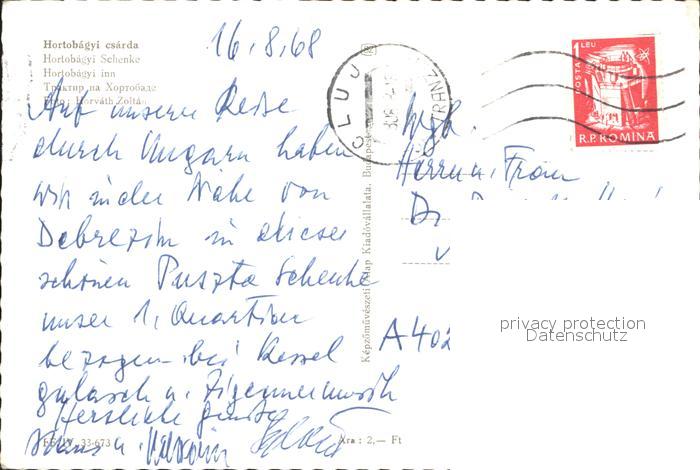 Hortobágyi csárda
Hortobágyi Schenke
Hortobágyi inn
Трактир на Хортобаде
Horváth Zoltán
16.8.68
Auf unserer Reise
durch Ungarn haben
wir in der Nähe von
Debrezin in dieser
schönen Puszta Schenke
unser 1. Quartier
bezogen bei Kessel
gulasch u. Zigeunermusik
Herzliche Grüße
Hans u.
33-673
Ára: 2,— Ft
Képzőművészeti Alap Kiadóvállalata, Budapest
CLUJ
POSTA 1 LEU
R.P. ROMINA
Herrn u. Frau
A 402
privacy protection
Datenschutz